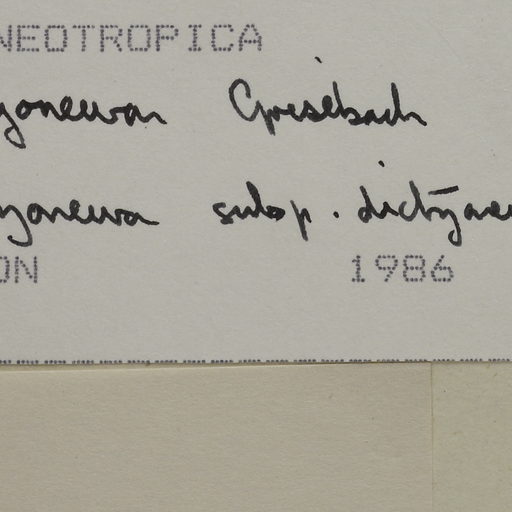 NEOTROPICA
yoneura Grisebach
yoneura subsp. dictyoneu
ON 1986